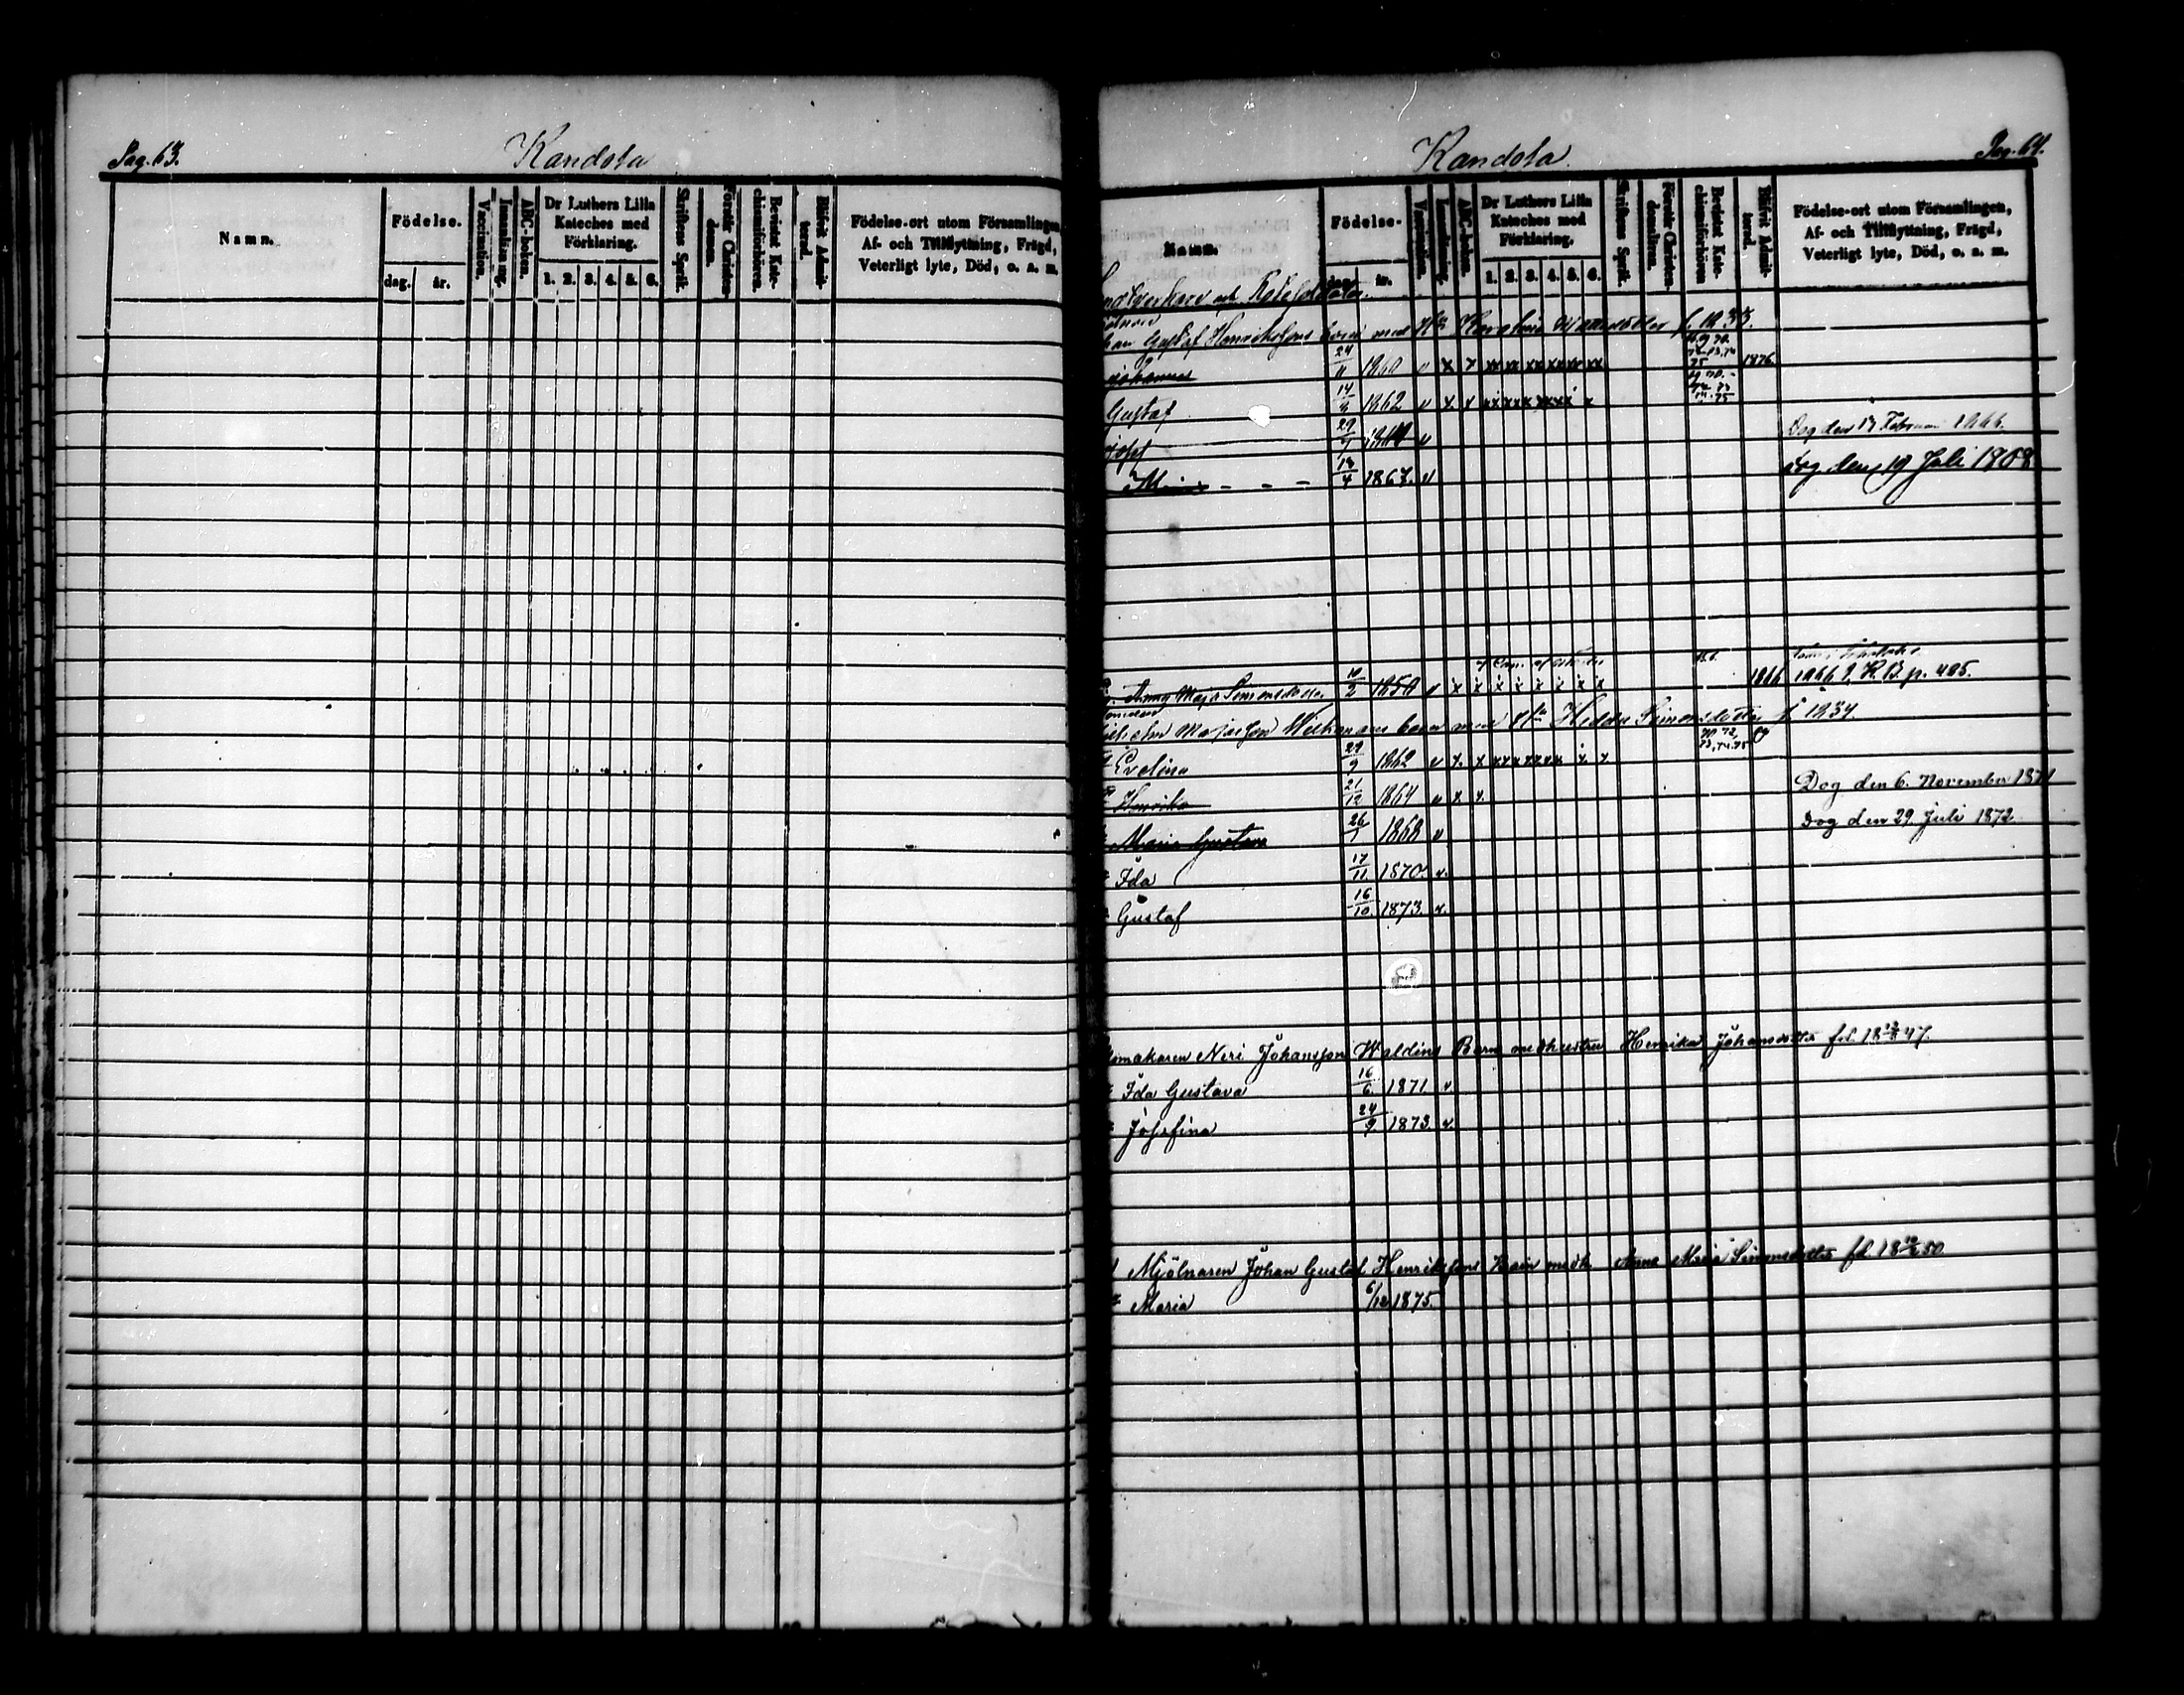 Pag. 63.
Kandola
Namn.
Födelse.
dag.
år.
Vaccination.
Innanläsning.
ABC-boken.
Dr Luthers Lilla Kateches med Förklaring.
1. 2. 3. 4. 5. 6.
Skriftens Språk.
Förstår Christendomen.
Bevistat Katechismiförhören.
Blifvit Admitterad.
Födelse-ort utom Församlingen,
Af- och Tillflyttning, Frägd,
Veterligt lyte, Död, o. a. m.
Kandola
Pag. 64.
Namn.
Födelse.
dag.
år.
Vaccination.
Innanläsning.
ABC-boken.
Dr Luthers Lilla Kateches med Förklaring.
1. 2. 3. 4. 5. 6.
Skriftens Språk.
Förstår Christendomen.
Bevistat Katechismiförhören
Blifvit Admitterad.
Födelse-ort utom Församlingen,
Af- och Tillflyttning, Frägd,
Veterligt lyte, Död, o. a. m.
Gustaf Henrikssons barn med f. 1833.
Johannes 24/11 1860 v x x xx xx xx xx xx xx 1876
Gustaf 14/8 1862 v x x
29/7 v Dog den 17 Februari 1866.
18/4 1867. v dog den 19 Juli 1868
Anna Maja Simonsdotter 10/2 1850 v x x x x x x x 1866 1866 K. B. p. 405.
Wickmans barn med Hedda Simonsdotter f. 1834.
Evelina 29/9 1862 v x x
Henrika 21/12 1864 v x x Dog den 6. November 1871
Maria Gustava 26/1 1868 v Dog den 29 Juli 1872
Ida 17/11 1870 v.
Gustaf 16/10 1873. v.
Neri Johansson Waldins Barn med hustru Henrika Johansdotter föd. 47.
Ida Gustava 16/6 1871. v
Josefina 24/9 1873 v.
Mjölnaren Johan Gustaf Henrikssons Barn med h. Anna Maria Simonsdotter föd. 18 10/2 50
Maria 6/12 1875.